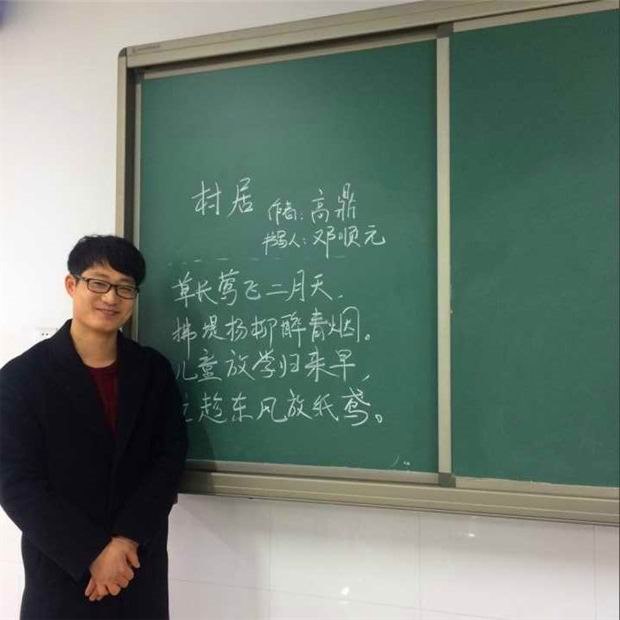 村居
作者:高鼎
书写人:邓顺元
草长莺飞二月天,
拂堤杨柳醉春烟。
儿童放学归来早,
忙趁东风放纸鸢。